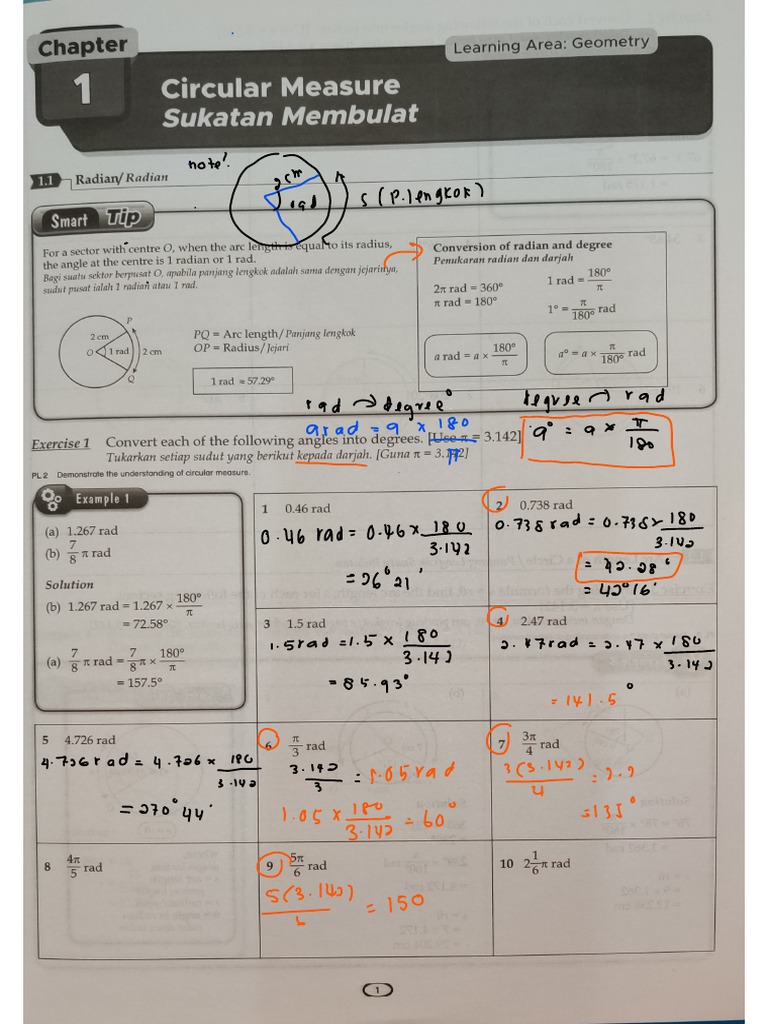 Chapter
1
Learning Area: Geometry
Circular Measure
Sukatan Membulat
note!
1.1 Radian/ Radian
2cm
rad
S (P.lengkok)
Smart Tip
For a sector with centre O, when the arc length is equal to its radius,
the angle at the centre is 1 radian or 1 rad.
Bagi suatu sektor berpusat O, apabila panjang lengkok adalah sama dengan jejarinya,
sudut pusat ialah 1 radian atau 1 rad.
P
2 cm
O 1 rad 2 cm
Q
PQ = Arc length/ Panjang lengkok
OP = Radius/ Jejari
1 rad ≈ 57.29°
Conversion of radian and degree
Penukaran radian dan darjah
2π rad = 360°
π rad = 180°
1 rad = 180°/π
1° = π/180° rad
a rad = a × 180°/π
a° = a × π/180° rad
rad → degree°
a rad = a × 180/π
degree → rad
a° = a × π/180
Exercise 1 Convert each of the following angles into degrees. [Use π = 3.142]
Tukarkan setiap sudut yang berikut kepada darjah. [Guna π = 3.142]
PL 2 Demonstrate the understanding of circular measure.
Example 1
(a) 1.267 rad
(b) 7/8 π rad
Solution
(b) 1.267 rad = 1.267 × 180°/π
= 72.58°
(a) 7/8 π rad = 7/8 π × 180°/π
= 157.5°
1 0.46 rad
0.46 rad = 0.46 × 180/3.142
= 26° 21'
2 0.738 rad
0.738 rad = 0.738 × 180/3.142
= 42.28°
= 42° 16'
3 1.5 rad
1.5 rad = 1.5 × 180/3.142
= 85.93°
4 2.47 rad
2.47 rad = 2.47 × 180/3.142
= 141.5°
5 4.726 rad
4.726 rad = 4.726 × 180/3.142
= 270° 44'
6 π/3 rad
3.142/3 = 1.05 rad
1.05 × 180/3.142 = 60°
7 3π/4 rad
3(3.142)/4 = 2.2
= 135°
8 4π/5 rad
9 5π/6 rad
5(3.142)/6 = 150
10 2 1/6 π rad
1